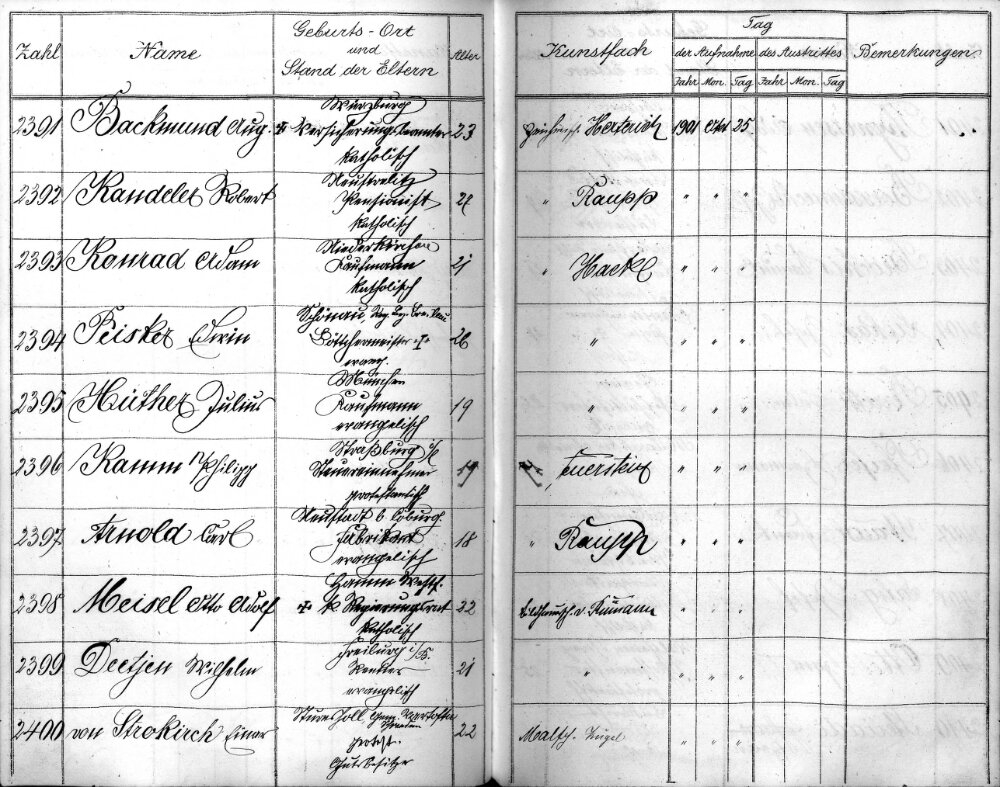 Zahl Name Geburts-Ort und Stand der Eltern Alter Kunstfach Tag der Aufnahme des Austrittes Bemerkungen
Jahr Mon. Tag Jahr Mon. Tag
2391 Backmund Aug. Würzburg 23 Herterich 1901 Okt 25
✝ Versicherungsbeamter
katholisch
2392 Kandeler Robert Neustrelitz " Raupp " " "
Pensionist
katholisch
2393 Konrad Adam Niederkirchen 21 " Hackl " " "
Kaufmann
katholisch
2394 Peisker Schönau 26 " " " "
Böttchermeister ✝
evang.
2395 Hüther Julius München 19 " " " "
Kaufmann
evangelisch
2396 Kamm Philipp Straßburg i/E 19 Feuerstein " " "
Steuereinnehmer
protestantisch
2397 Arnold Carl Neustadt b. Coburg. 18 " Raupp " " "
Fabrikant
evangelisch
2398 Meisel Otto Adolf Hamm Westf. 22 Bildhauersch. v. Rümann " " "
✝ k. Regierungsrat
katholisch
2399 Deetjen Wilhelm Freiburg i/B. 21 " " " "
Rentier
evangelisch
2400 von Strokirch Einar 22 Maltsch. " " "
protest.
Gutsbesitzer